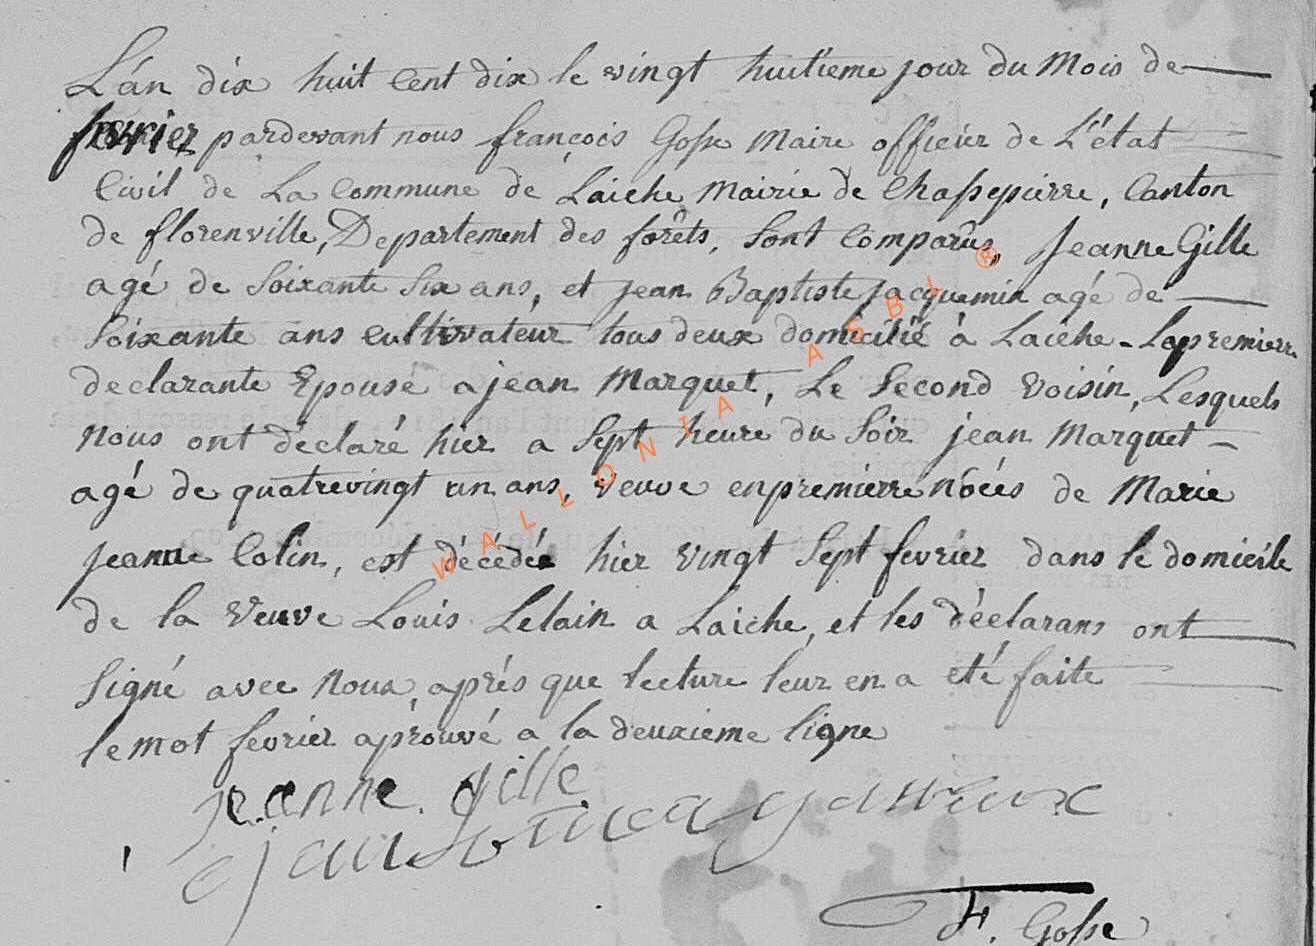 L'án dix huit Cent dix le vingt huitieme jour du Mois de
fevrier pardevant nous françois Gosse Maire officier de L'état
Civil de La Commune de Laiche Mairie de Chassepierre, Canton
de florenville, Departement des forêts, sont Comparûs, Jeanne Gille
agé de Soixante Six ans, et jean Baptiste Jacquemin agé de
Soixante ans cultivateur tous deux domicilié à Laiche - La premierre
declarante Epouse a jean Marquet, Le Second Voisin, Lesquels
Nous ont déclaré hier a Sept heure du Soir jean Marquet
agé de quatrevingt un ans, veuve en premierre Nôces de Marie
jeanne Colin, est décédée hier vingt Sept fevrier dans le domicile
de la Veuve Louis Lelain a Laiche, et les déclarans ont
Signé avec Nous, aprés que lecture leur en a eté faite
le mot fevrier aprouvé a la deuxieme ligne
jeanne gille
F. Gosse
WALLONIA ASBL ®